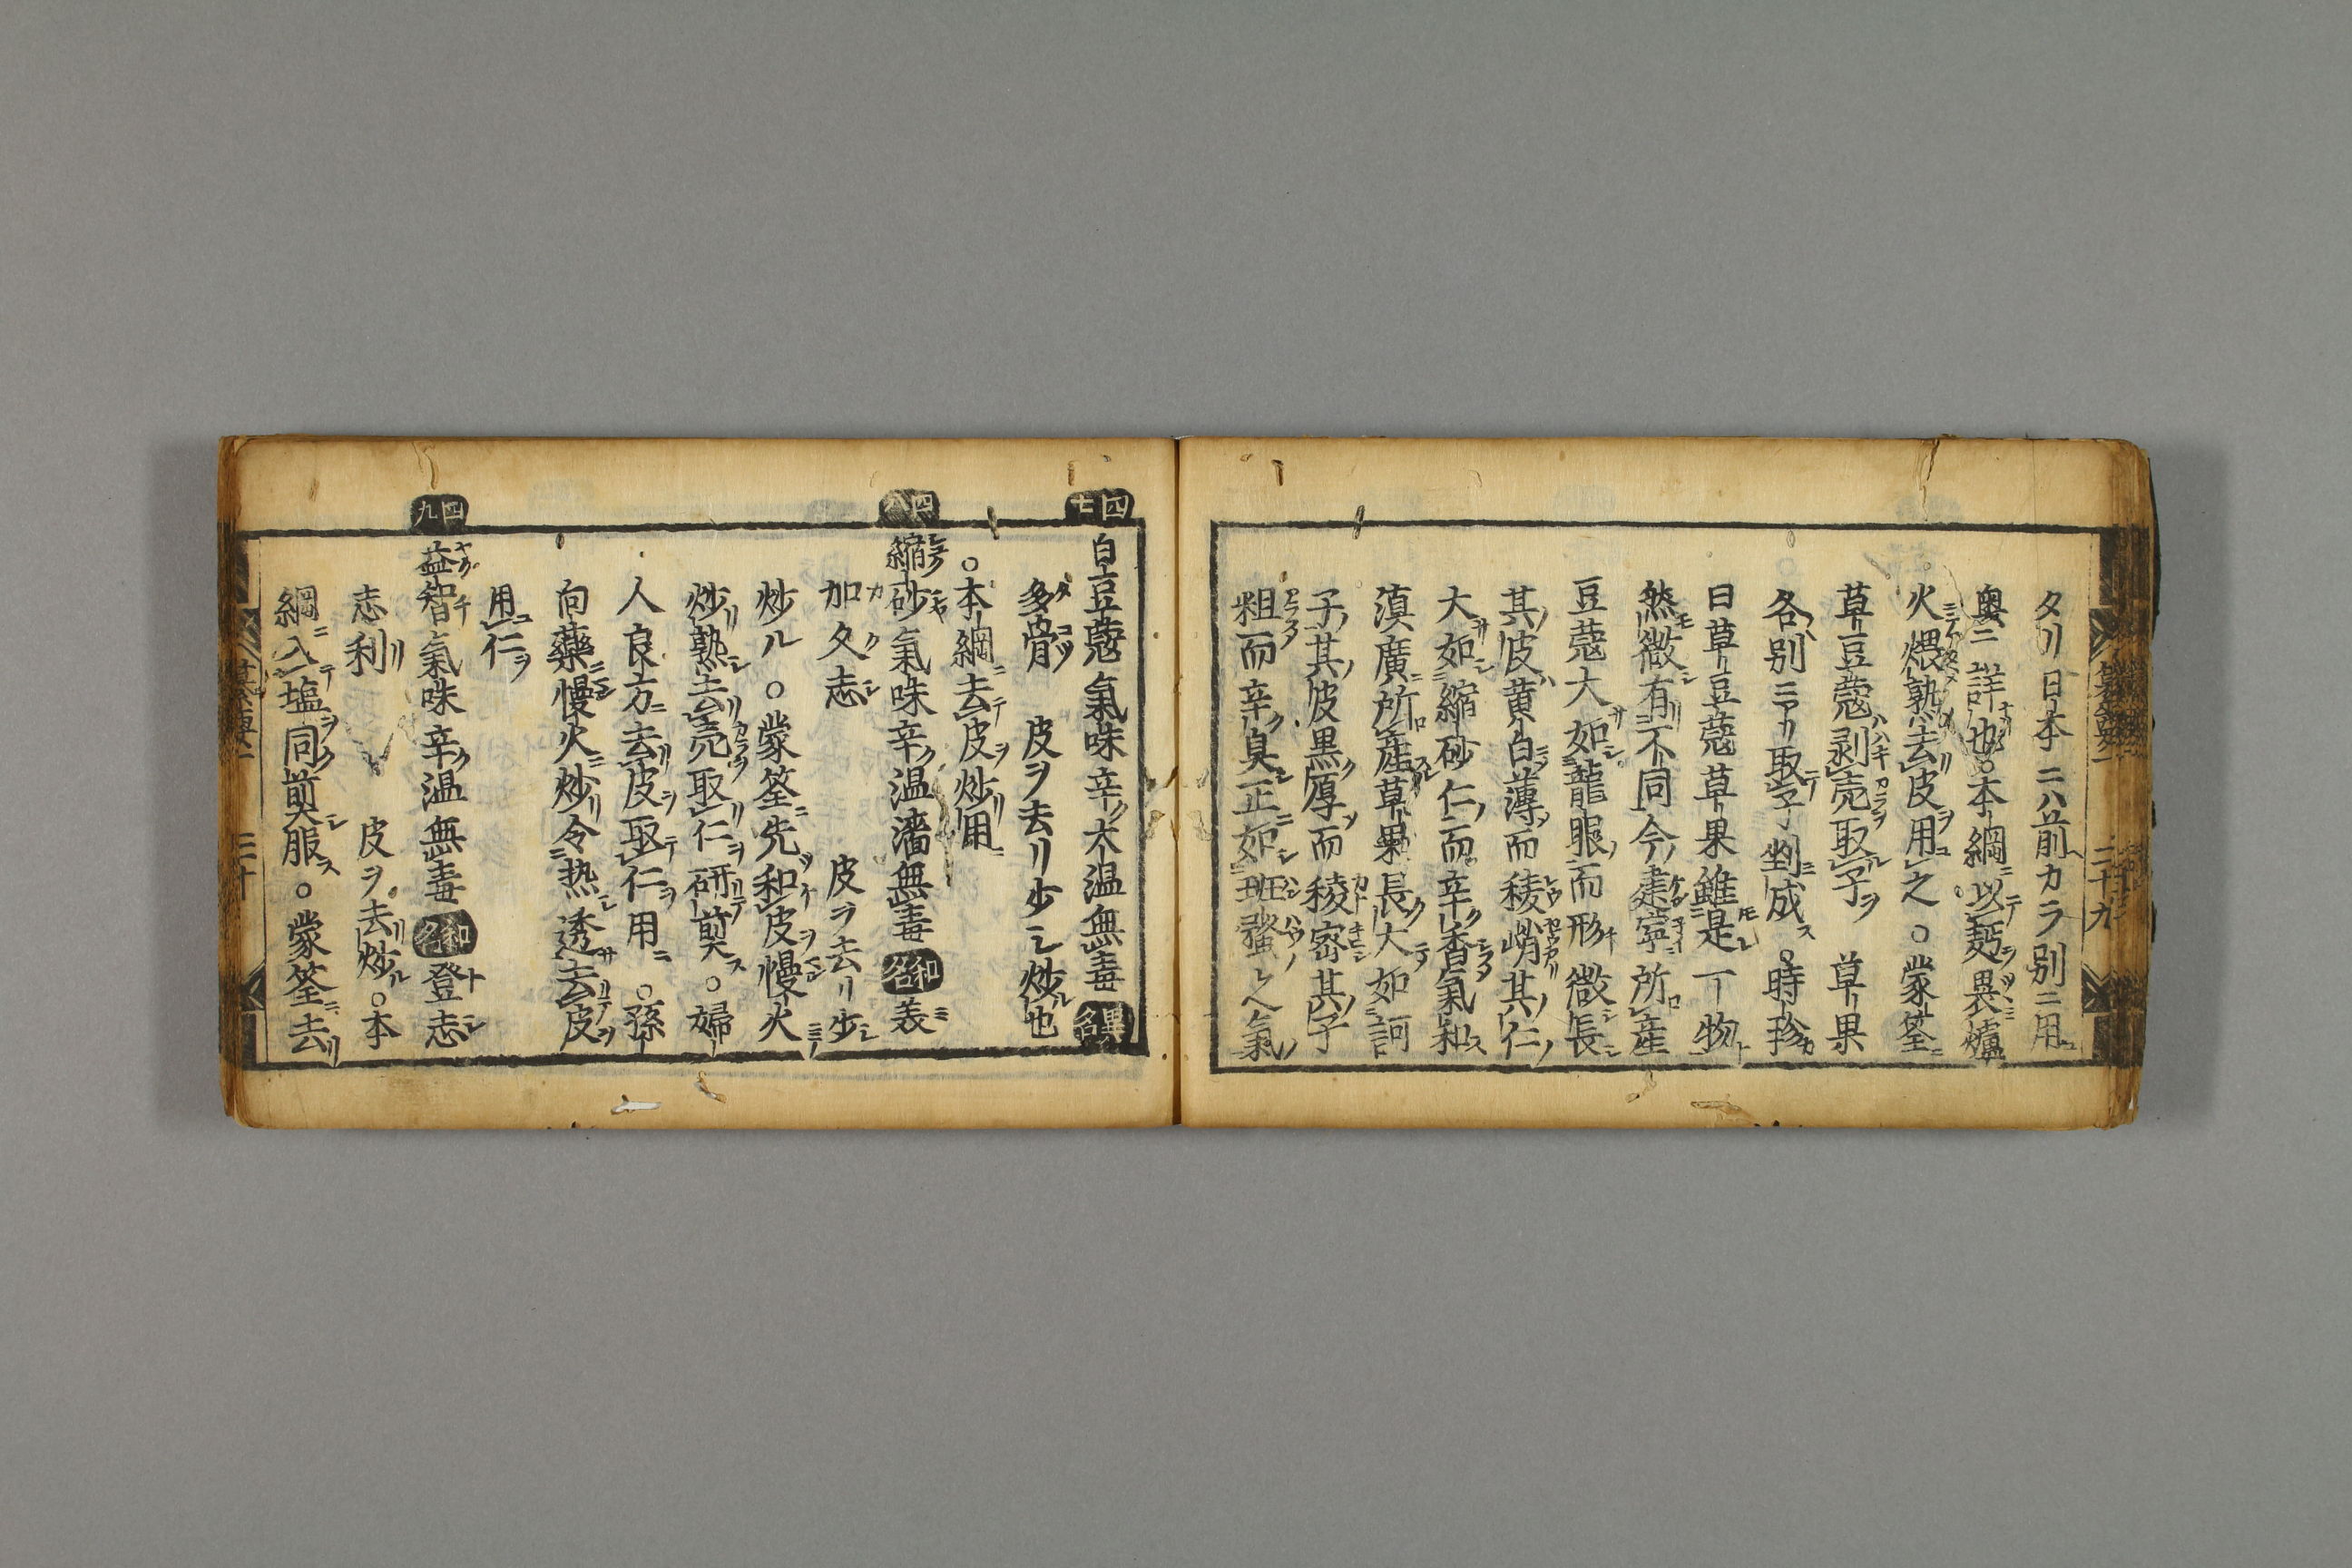 タリ日本ニハ前カラ別ニ用
奥ニ詳也。本綱以麪畏爐
火煨熟去皮用之○蒙筌
草豆蔻剥売取子草果
各別ニアリ取子剉成。時珍
曰草豆蔻草果雖是一物
然微有不同今建寧所産
豆蔻大如龍眼而形微長
其皮黄白薄而稜峭其仁
大如縮砂仁而辛香氣和
滇廣所産草果長大如訶
子其皮黒厚而稜密其子
粗而辛臭正如斑蝥之氣
四七
白豆蔻氣味辛大温無毒異名
多骨皮ヲ去リ少シ炒也
○本綱去皮炒用
四八
縮砂氣味辛温濇無毒和名義
加久志皮ヲ去リ少
炒ル○蒙筌先和皮慢火
炒熟去売取仁研煎。婦
人良方去皮取仁用。孫
向藥慢火炒令熱透去皮
用仁
四九
益智氣味辛温無毒和名登志
志利皮ヲ去炒。本
綱入塩同煎服○蒙筌去
二十九
三十